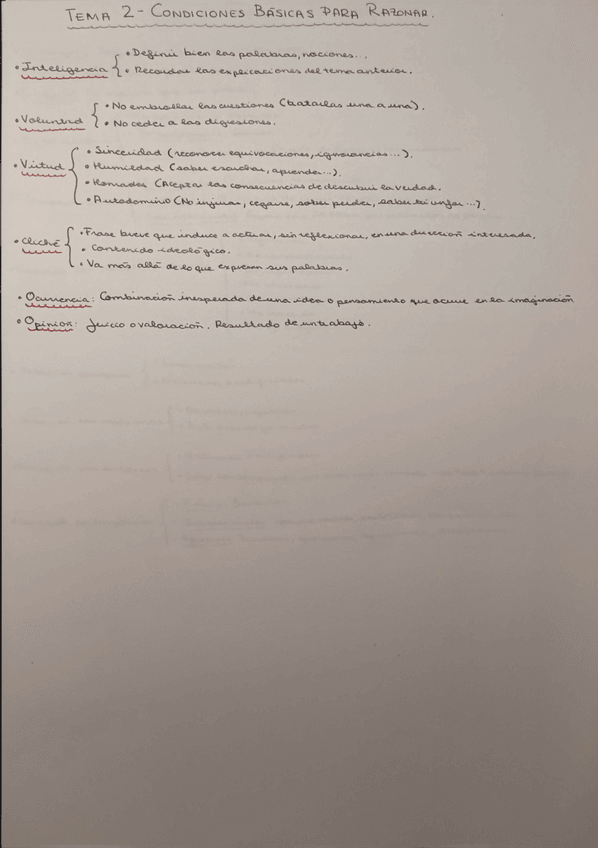 TEMA 2 - CONDICIONES BÁSICAS PARA RAZONAR.
• Inteligencia { • Definir bien las palabras, nociones...
• Recordar las explicaciones del tema anterior.
• Voluntad { • No embrollar las cuestiones (tratarlas una a una).
• No ceder a las digresiones.
• Virtud { • Sinceridad (reconocer equivocaciones, ignorancias...).
• Humildad (saber escuchar, aprender...).
• Honradez (Aceptar las consecuencias de descubrir la verdad.
• Autodominio (No injuriar, cegarse, saber perder, saber triunfar...).
• Cliché { • Frase breve que induce a actuar, sin reflexionar, en una dirección interesada.
• Contenido ideológico.
• Va más allá de lo que expresan sus palabras.
• Ocurrencia: Combinación inesperada de una idea o pensamiento que ocurre en la imaginación
• Opinión: Juicio o valoración. Resultado de un trabajo.